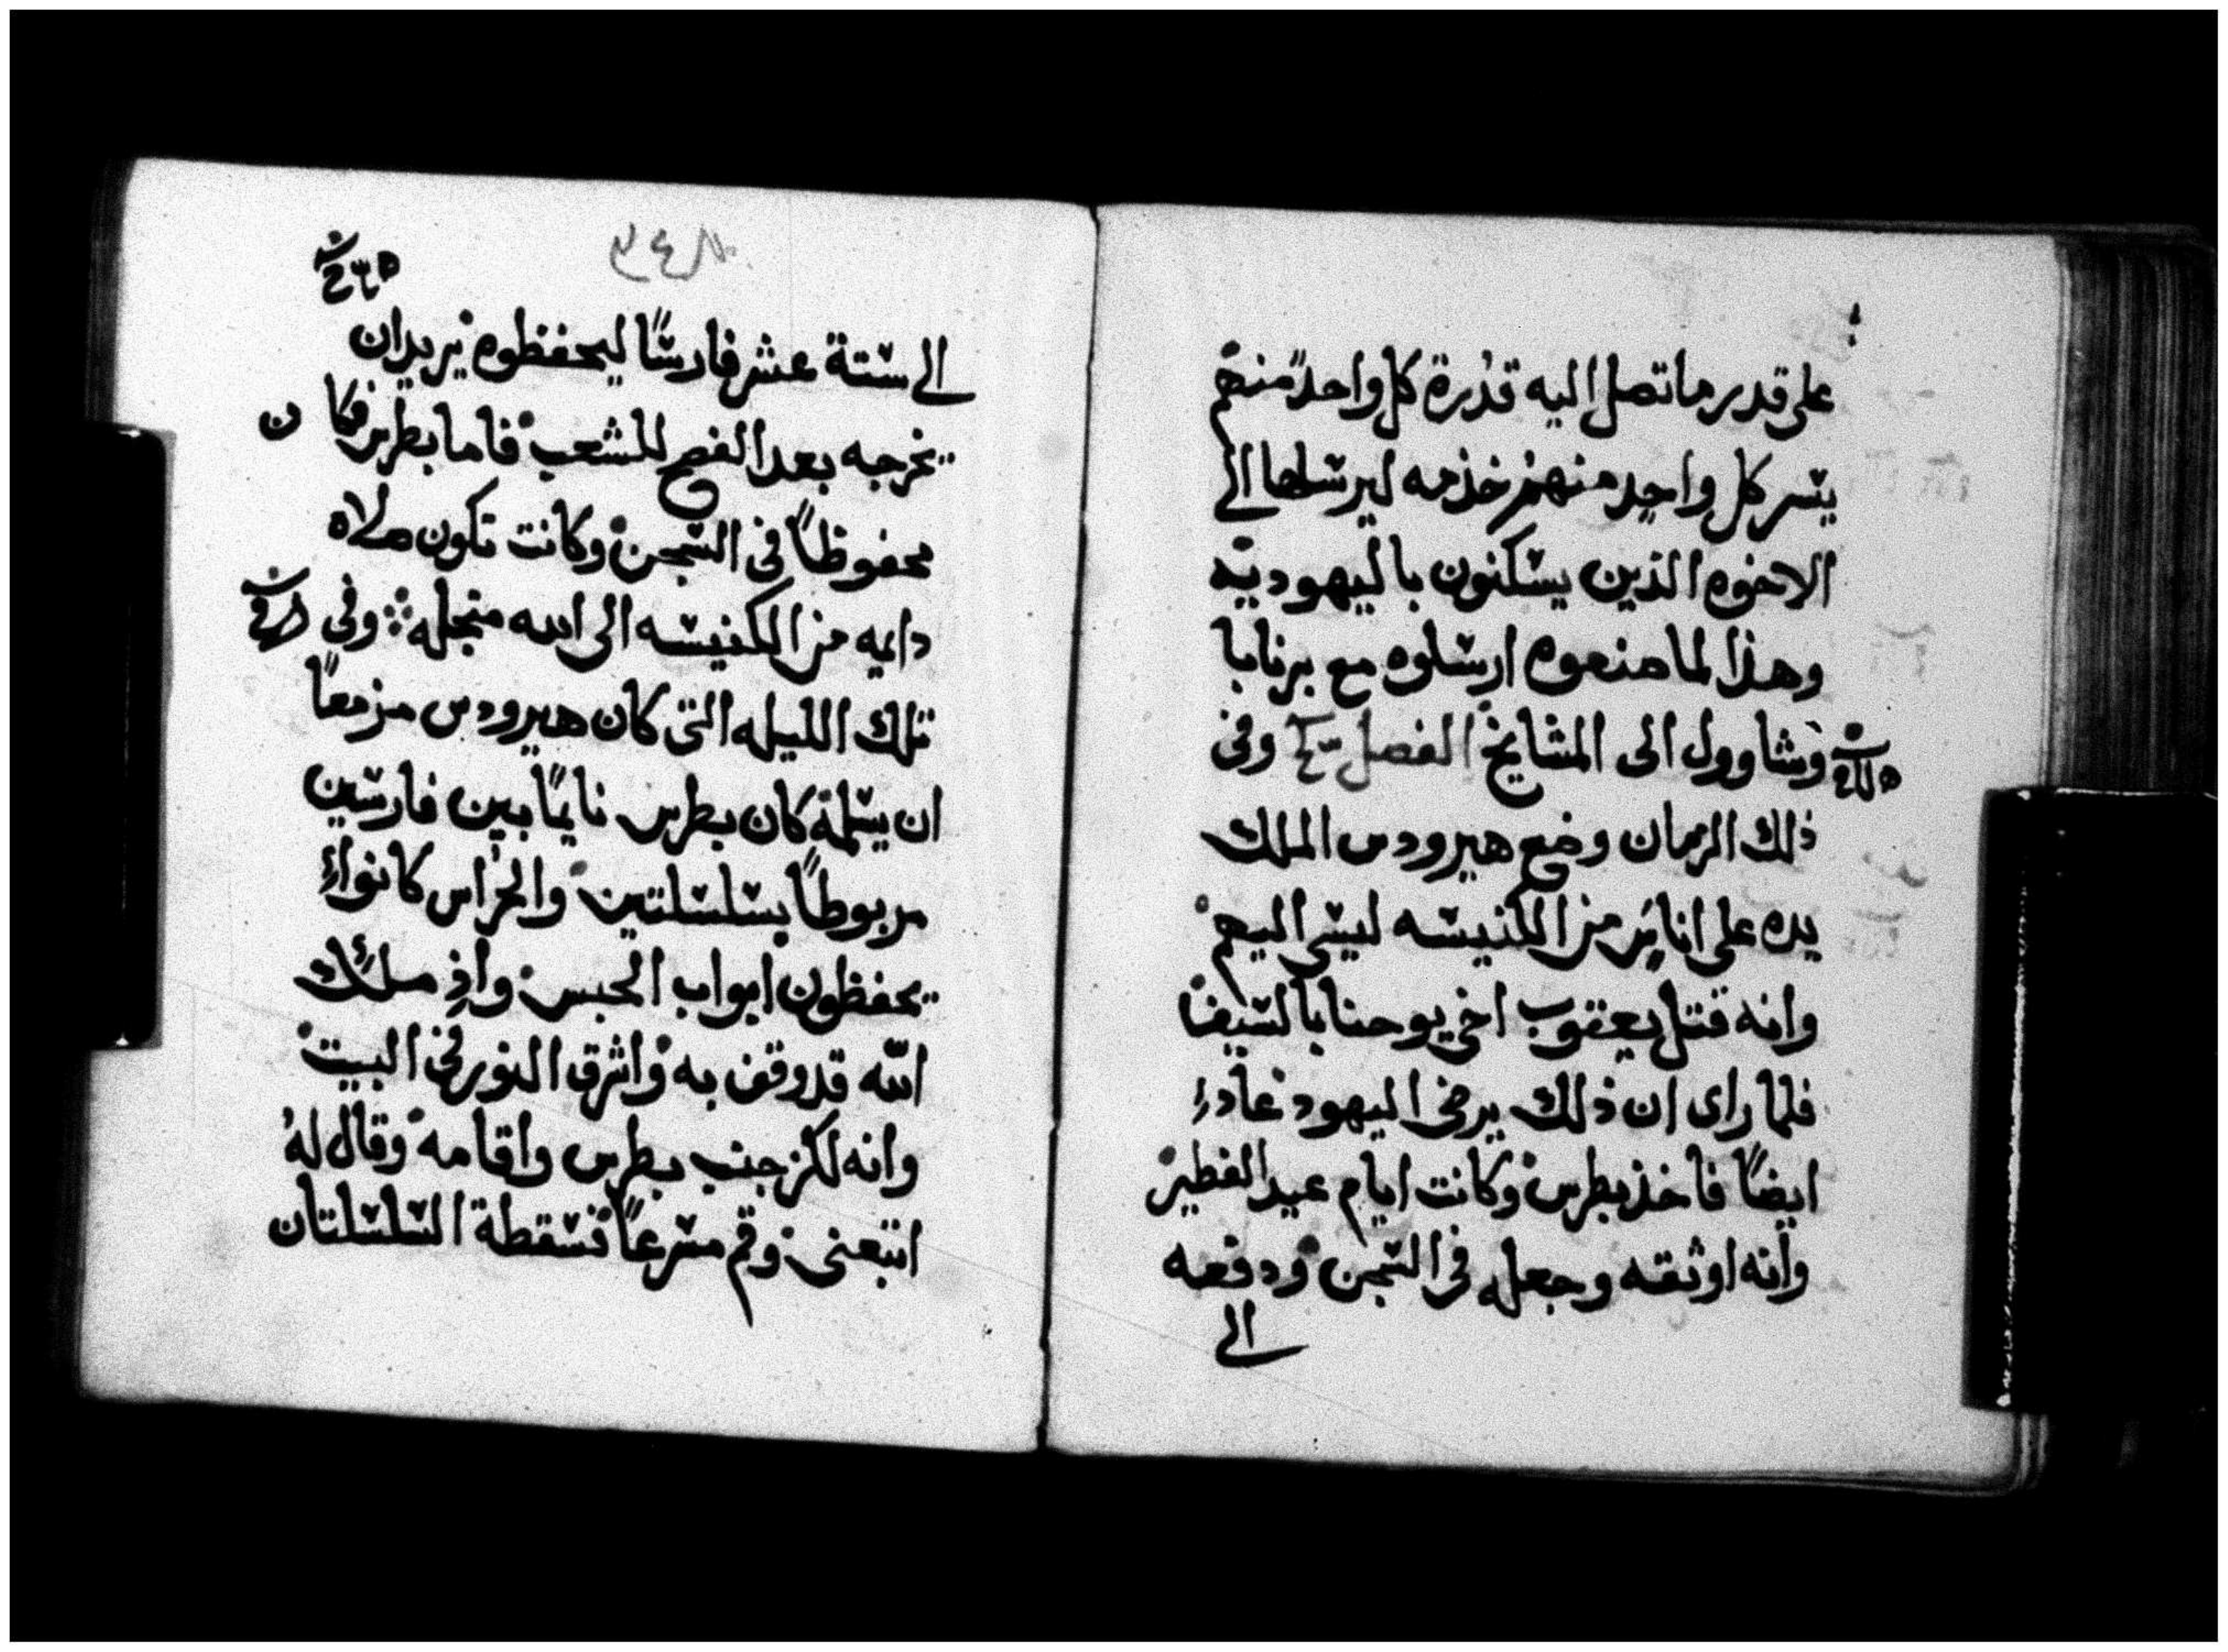 على قدر ما تصل اليه قدرة كل واحد منهم
يسر كل واحد منهم خذمه ليرسلها الى
الاخوه الذين يسكنون باليهوديه
وهذا لما صنعوه ارسلوه مع برنابا
وشاوول الى المشايخ الفصل وفي
ذلك الزمان وضع هيرودس الملك
يده على اناس من الكنيسه ليسي اليهم
وانه قتل يعقوب اخي يوحنا بالسيف
فلما راى ان ذلك يرضى اليهود عاد
ايضًا فاخذ بطرس وكانت ايام عيد الفطير
وانه اوثقه وجعله في السجن ودفعه
الى
٣٤٨
الى ستة عشر فارسًا ليحفظوه يريد ان
يخرجه بعد الفصح للشعب فاما بطرس فكان
محفوظًا في السجن وكانت تكون صلاه
دايمه من الكنيسه الى الله منجله وفي
تلك الليله التي كان هيرودس مزمعًا
ان يسلمه كان بطرس نايمًا بين فارسين
مربوطًا بسلسلتين والحراس كانوا
يحفظون ابواب الحبس واذ ملك
الله قد وقف به واشرق النور في البيت
وانه لكز جنب بطرس واقامه وقال له
اتبعني وقم مسرعًا فسقطة السلسلتان